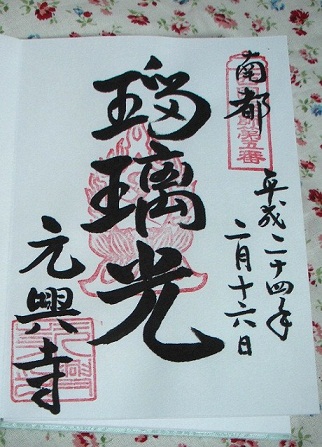 南都
平成二十四年
二月十六日
瑠璃光
元興寺